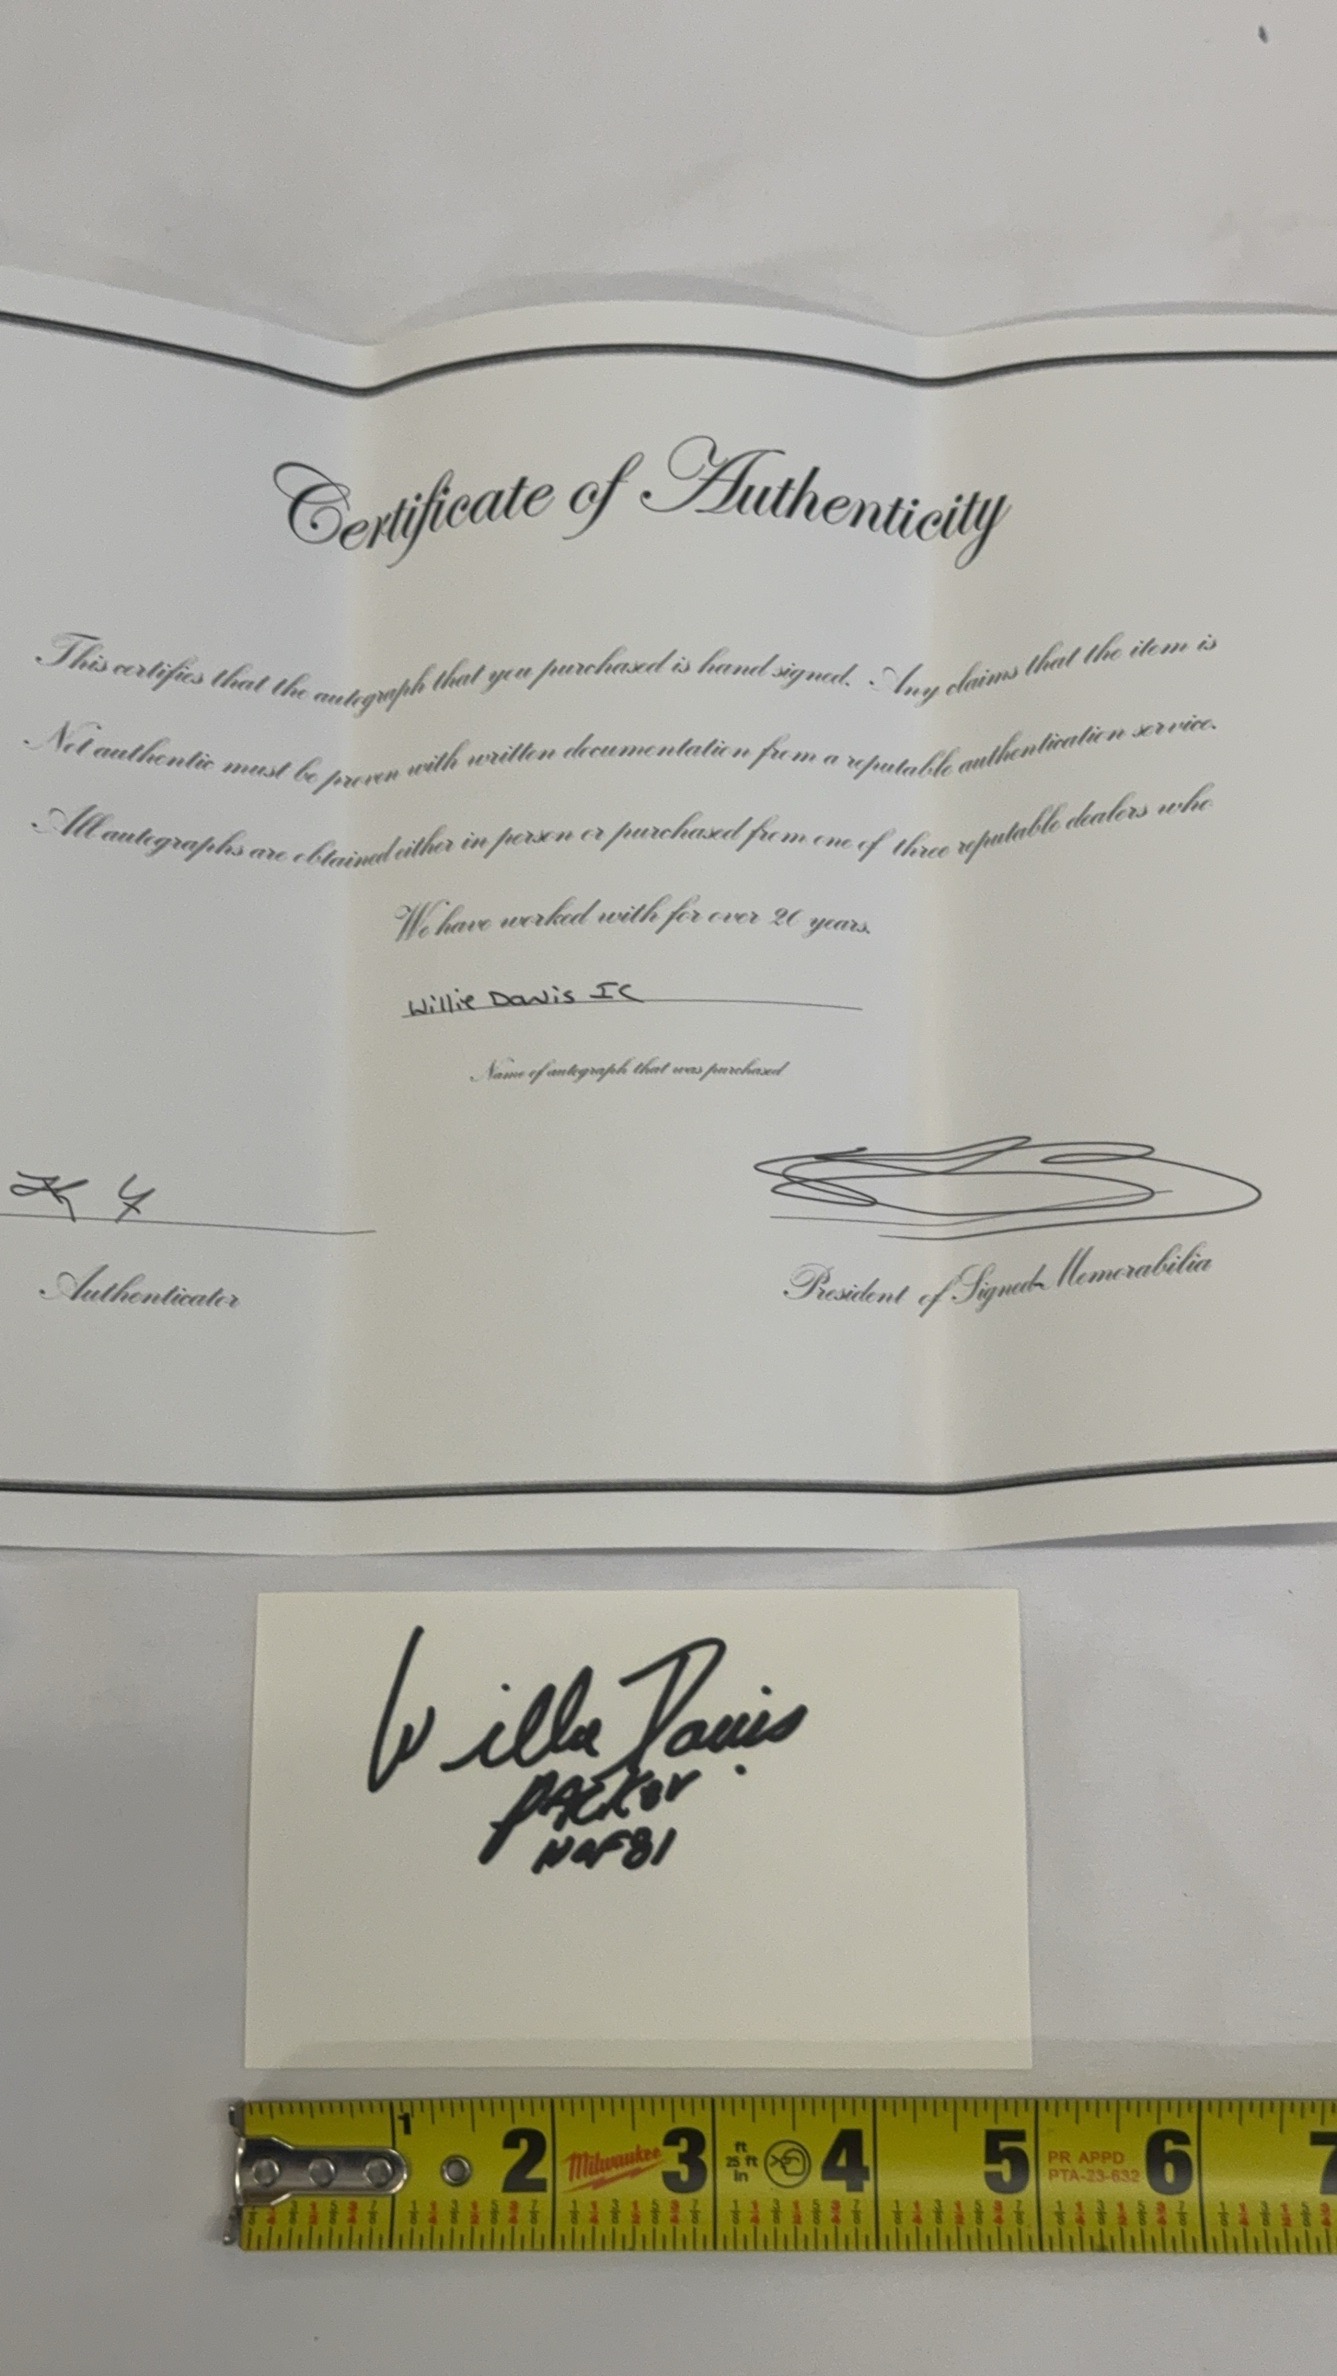 Certificate of Authenticity
This certifies that the autograph that you purchased is hand signed. Any claims that the item is
Not authentic must be proven with written documentation from a reputable authentication service.
All autographs are obtained either in person or purchased from one of three reputable dealers who
We have worked with for over 20 years.
Willie Davis IC
Name of autograph that was purchased
Authenticator
President of Signed Memorabilia
Willie Davis
PACKer
HOF81
1 2 Milwaukee 3 ft 25 ft in 4 5 PR APPD PTA-23-632 6 7